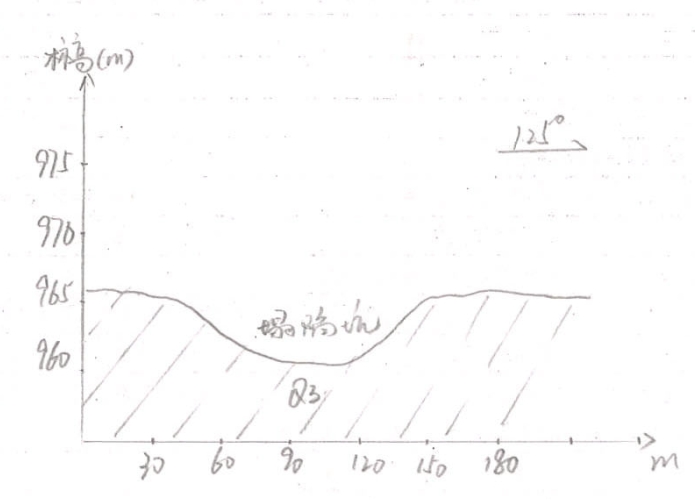 标高(m)
125°
975
970
965
塌陷坑
960
Q3
30 60 90 120 150 180 m